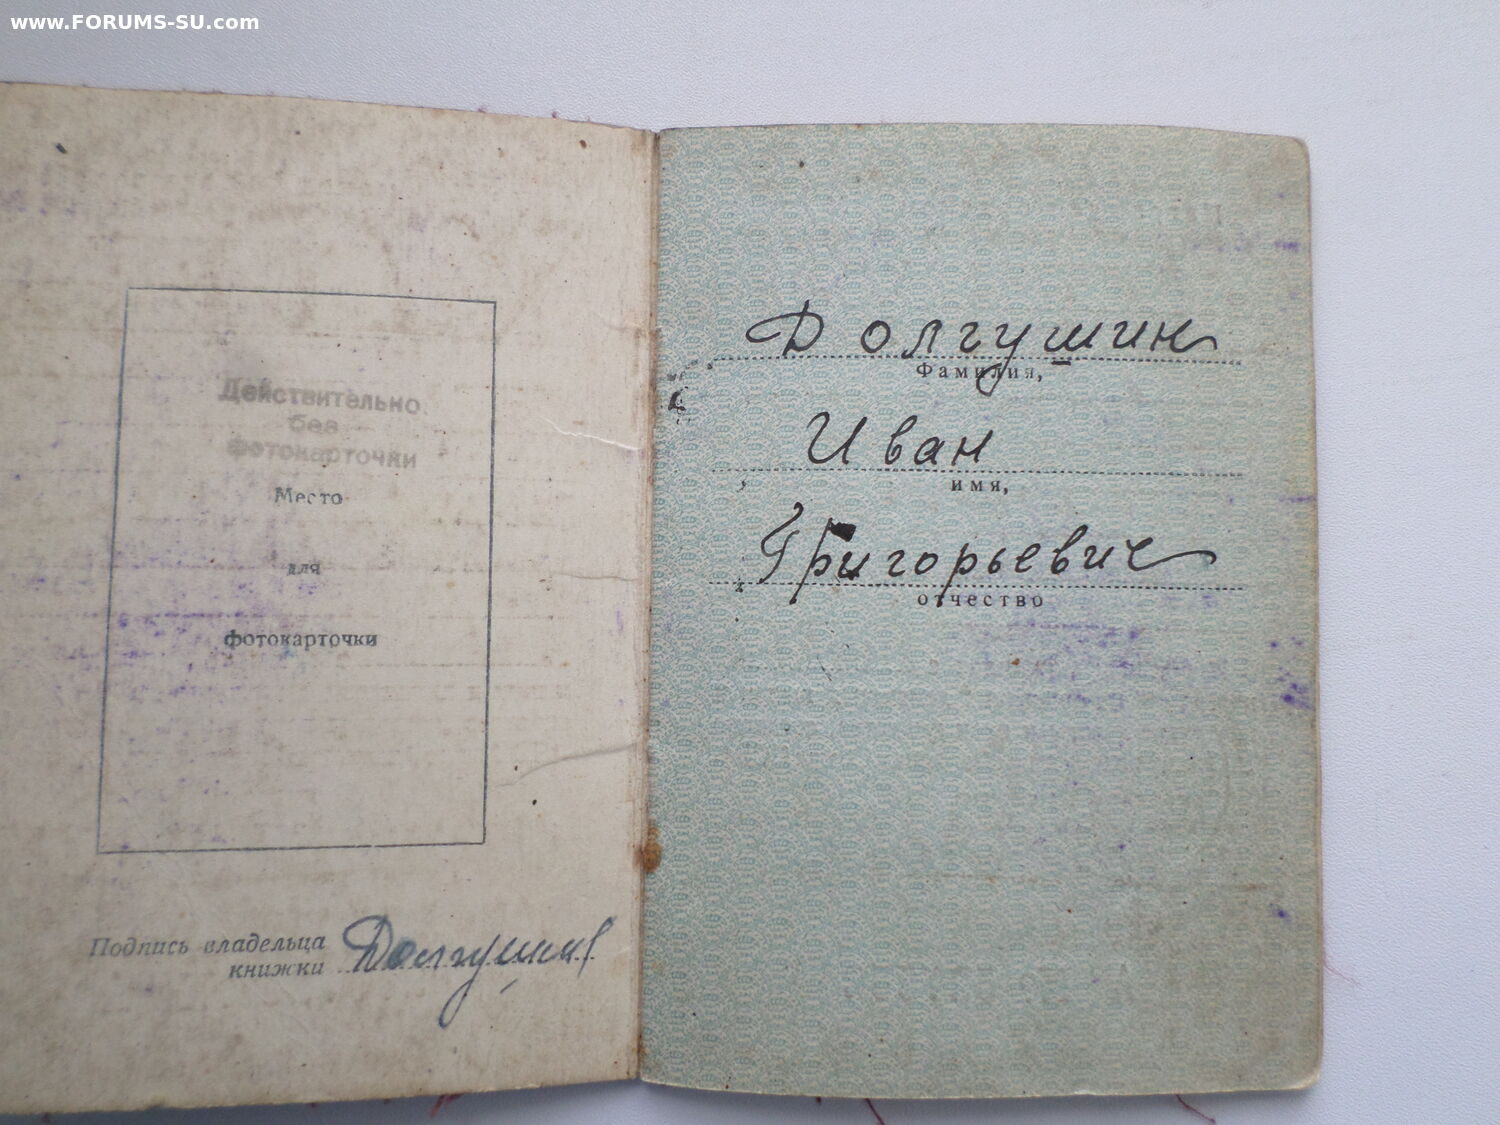 www.FORUMS-SU.com
Действительно
без
фотокарточки
Место
для
фотокарточки
Подпись владельца
книжки Долгушин
Долгушин
Фамилия,
Иван
имя,
Григорьевич
отчество